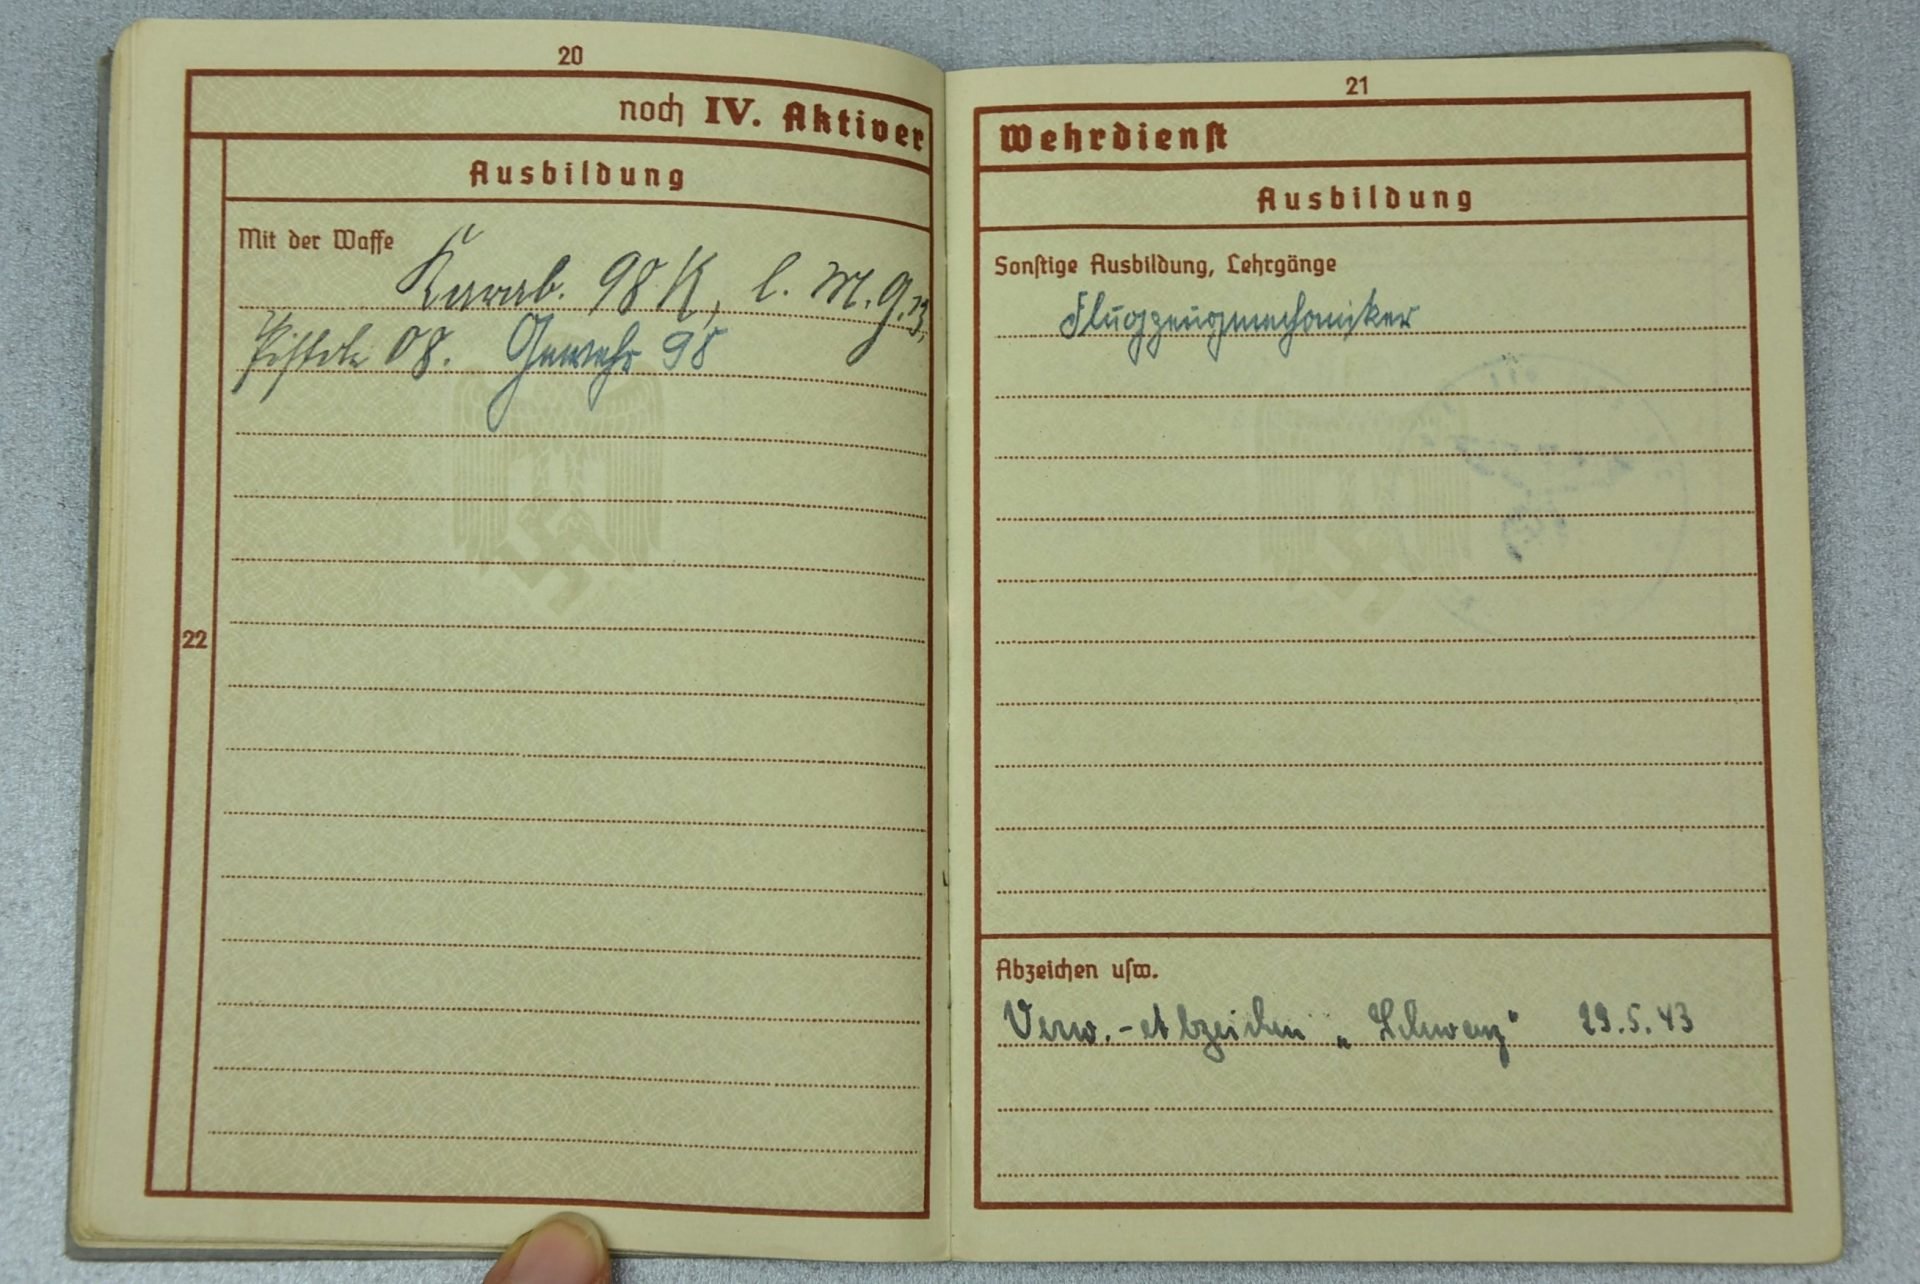 20
noch IV. Aktiver
Ausbildung
Mit der Waffe
Karab. 98 K, l. M. G. 13,
Pistole 08. Gewehr 98
22
21
Wehrdienst
Ausbildung
Sonstige Ausbildung, Lehrgänge
Flugzeugmechaniker
Abzeichen usw.
Verw.-Abzeichen „Schwarz" 29.5.43